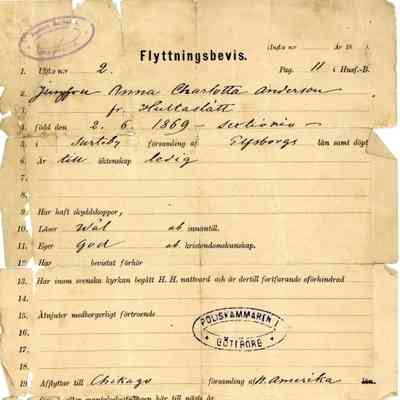 (Infl:s n:r År 18
Flyttningsbevis.
1. Utfl:s n:r 2. Pag. 11 i Husf.-B.
2. Jungfru Anna Charlotta Anderson
3. fr. Hultaslätt
4. född den 2. 6. 1869
5. i församling af Elfsborgs län samt döpt
6. Är till äktenskap ledig
7.
8.
9. Har haft skyddskoppor,
10. Läser wäl ab innantill.
11. Eger god ab kristendomskunskap.
12. Har bevistat förhör
13. Har inom svenska kyrkan begått H. H. nattvard och är dertill fortfarande oförhindrad
14.
15. Åtnjuter medborgerligt förtroende
16.
17.
18.
POLISKAMMAREN I
GÖTEBORG
19. Afflyttar till Chikago församling af N. Amerika län.